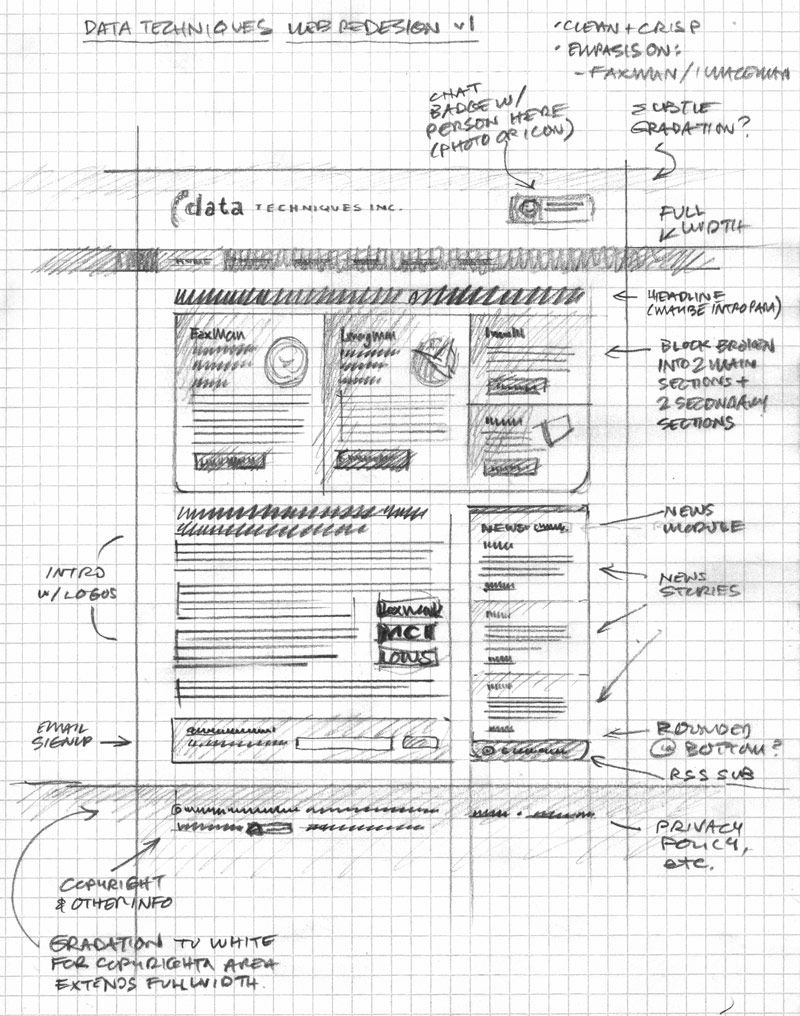 DATA TECHNIQUES WEB REDESIGN v1
• CLEAN + CRISP
• EMPASIS ON:
- FAXMAN / IMAGEMAN
CHAT
BADGE W/
PERSON HERE
(PHOTO OR ICON)
SUBTLE
GRADATION?
data TECHNIQUES INC.
FULL
WIDTH
HOME
HEADLINE
(MAYBE INTRO PARA)
FaxMan
ImagMan
BLOCK BROKEN
INTO 2 MAIN
SECTIONS +
2 SECONDARY
SECTIONS
NEWS
NEWS
MODULE
INTRO
W/ LOGOS
NEWS
STORIES
MCI
LOWS
EMAIL
SIGNUP
ROUNDED
@ BOTTOM?
RSS SUB
PRIVACY
POLICY,
etc.
COPYRIGHT
& OTHER INFO
GRADATION TO WHITE
FOR COPYRIGHTA AREA
EXTENDS FULL WIDTH.